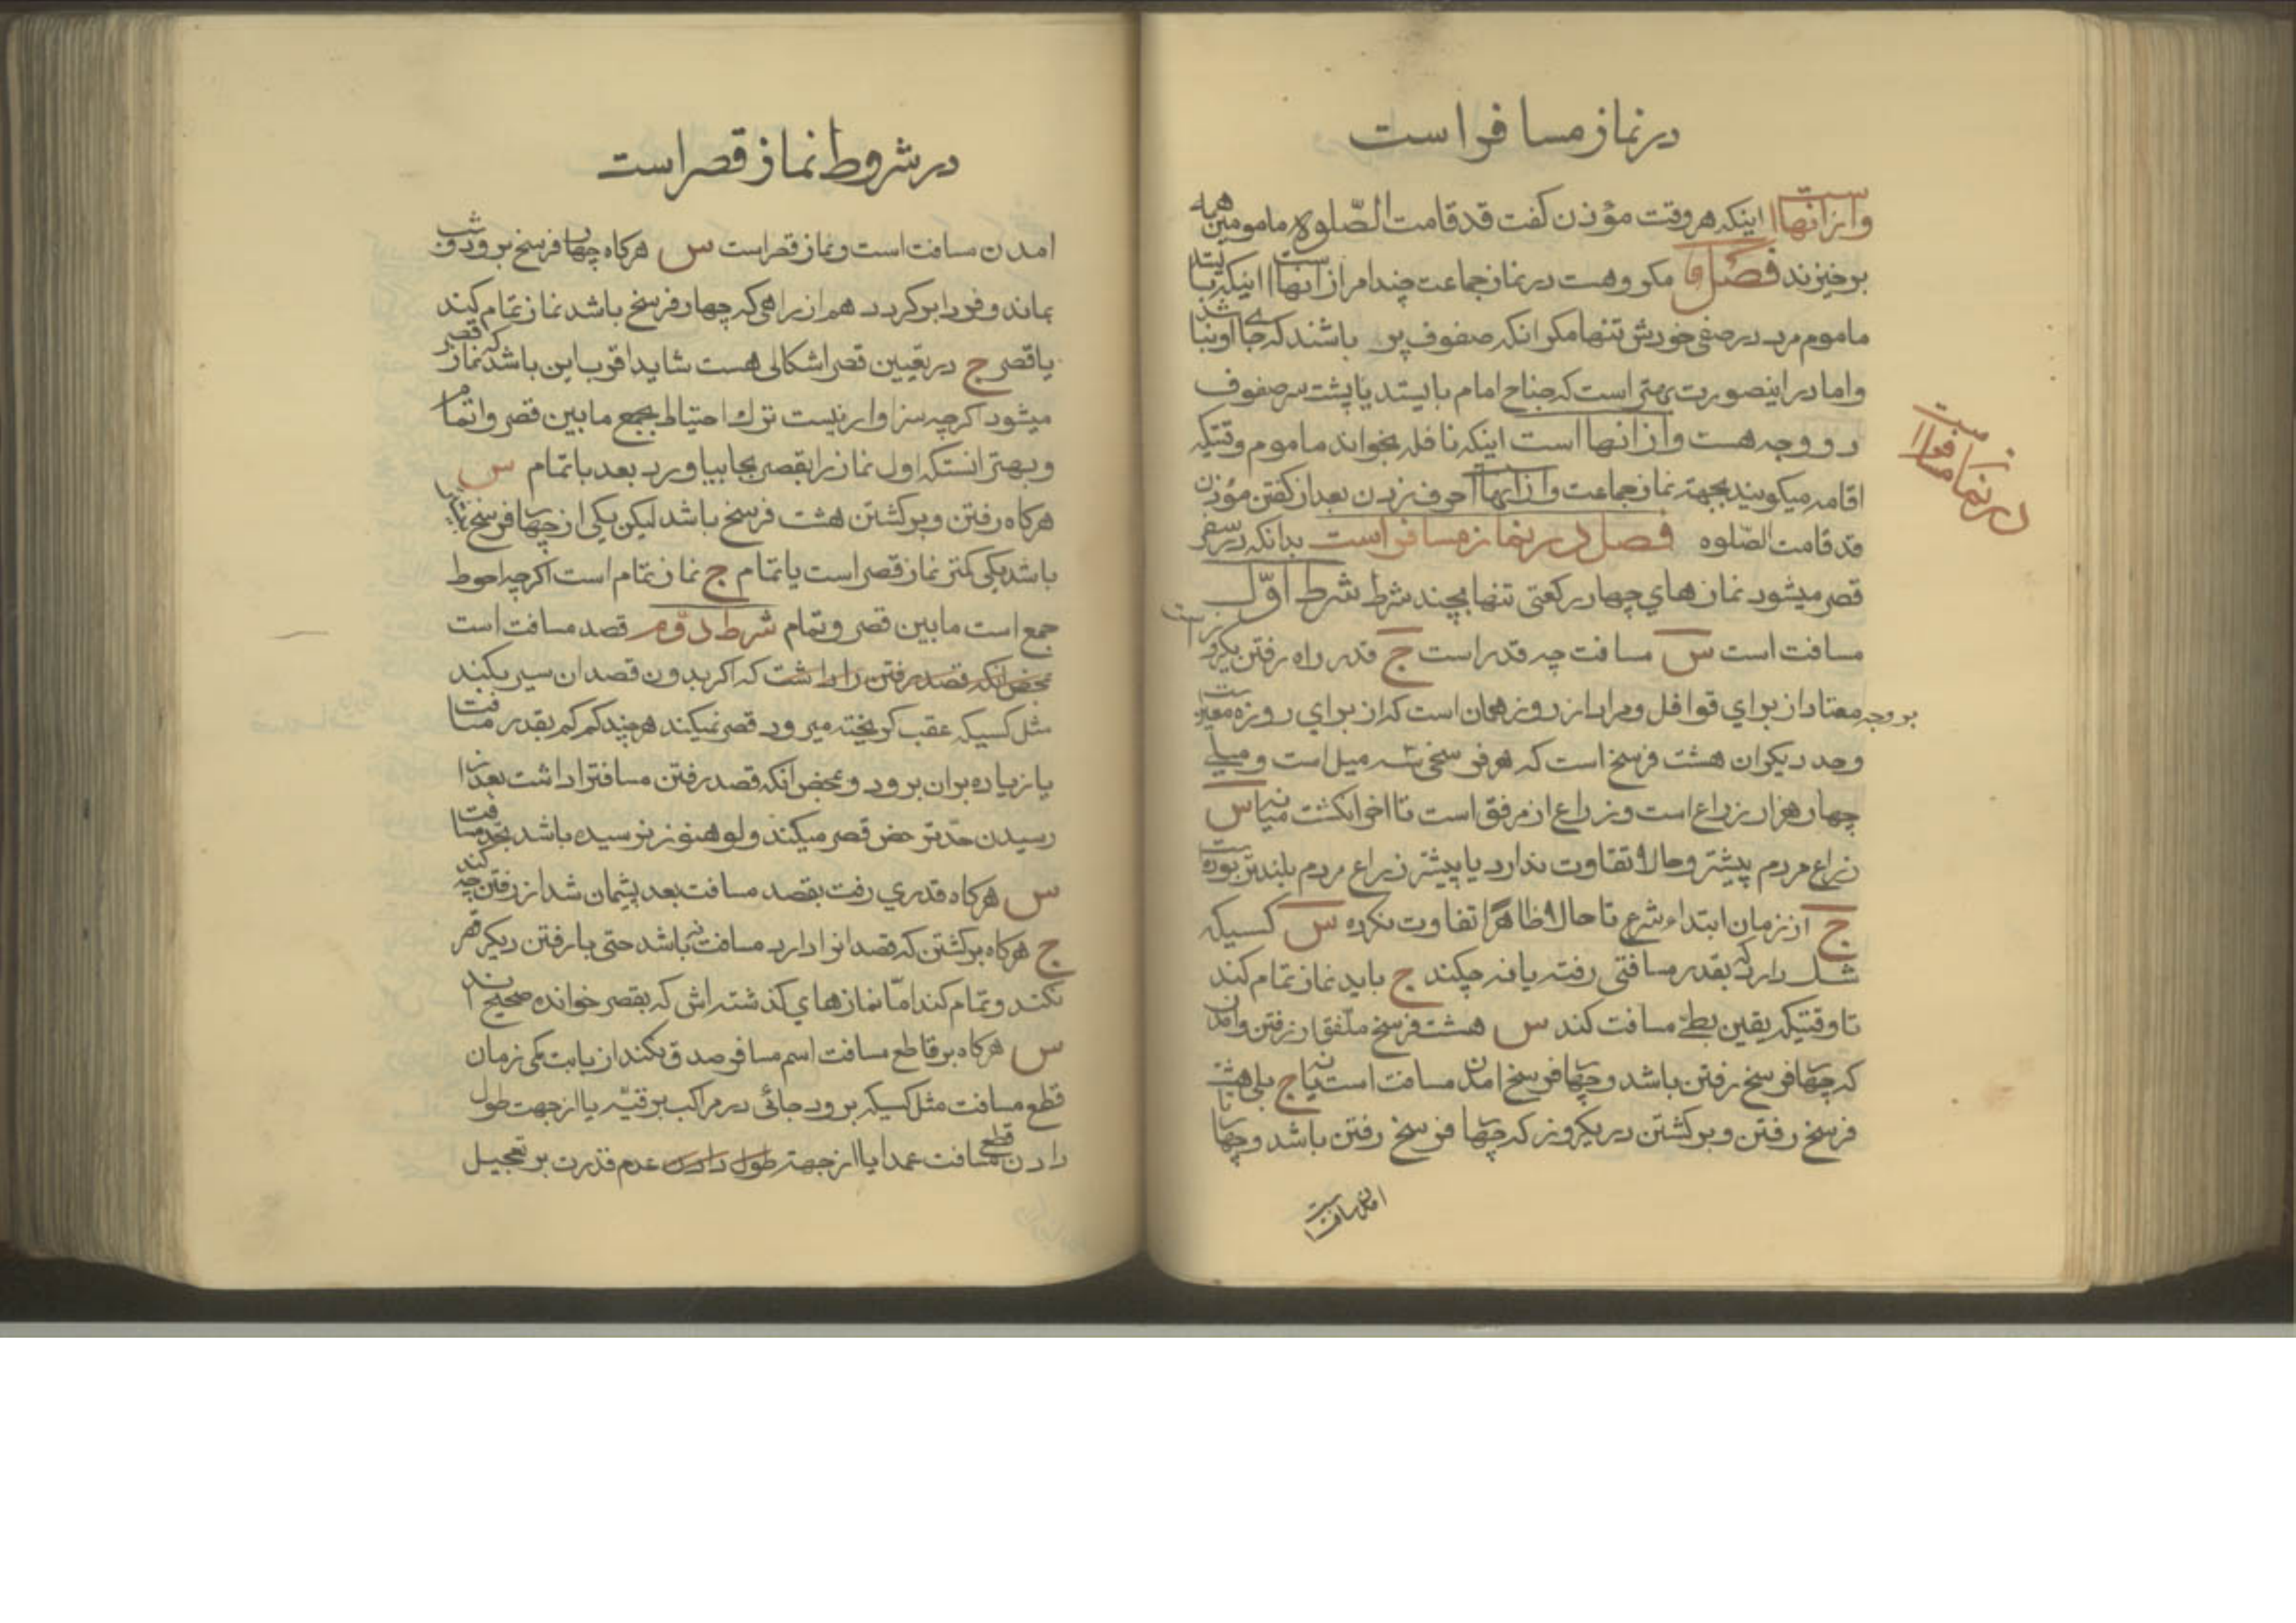 در نماز مسافر است
و از انهااست اینکه هر وقت مؤذن کفت قد قامت الصّلوه مامومین همه
برخیزند فصل و اما مکروهست در نماز جماعت چند امر از انهااست اینکه بایستد
ماموم مرد در صفی خودش تنها مکر انکه صفوف پر باشند که جای او نباشد
و اما در اینصورت بهتر است که جناح امام بایستد یا پشت سر صفوف
دو وجه هست و از انها است اینکه نافله بخواند ماموم وقتیکه
اقامه میکویند بجهته نماز جماعت و از انها حرف زدن بعد از کفتن مؤذن
قد قامت الصّلوه فصل در نماز مسافر است بدانکه در سفر
در نماز مسافر است
قصر میشود نماز های چهار رکعتی تنها بچند شرط شرط اوّل
مسافت است س مسافت چه قدر است ج قدر راه رفتن یکروز است
بر وجه معتاد از برای قوافل و مراد از روز همان است که از برای روزه معتبر است
و حد دیکر ان هشت فرسخ است که هر فرسخی سه میل است و میلی
چهار هزار ذراع است و ذراع از مرفق است تا اخر انکشت میانه س
ذراع مردم پیشتر و حالا تفاوت ندارد یا پیشتر ذراع مردم بلندتر بوده است
ج از زمان ابتداء شرع تا حالا ظاهرًا تفاوت نکرده س کسیکه
شک دارد که بقدر مسافتی رفته یا نه چکند ج باید نماز تمام کند
تا وقتیکه یقین بطی مسافت کند س هشت فرسخ ملفّق از رفتن و امدن
که چهار فرسخ رفتن باشد و چهار فرسخ امدن مسافت است یا نه ج بلی هشت
فرسخ رفتن و برکشتن در یکروز که چهار فرسخ رفتن باشد و چهار تا
امدن مسافت است
در شروط نماز قصر است
امدن مسافت است و نماز قصر است س هرکاه چهار فرسخ برود و شب
بماند و فردا برکردد هم از راهی که چهار فرسخ باشد نماز تمام کند
یا قصر ج در تعیین قصر اشکالی هست شاید اقرب این باشد که نماز قصر
میشود اکرچه سزاوار نیست ترك احتیاط بجمع ما بین قصر و اتمام
و بهتر انستکه اول نماز را بقصر بجا بیاورد بعد با تمام س
هرکاه رفتن و برکشتن هشت فرسخ باشد لیکن یکی از چهار فرسخ زیادتر
باشد یکی کمتر نماز قصر است یا تمام ج نماز تمام است اکرچه احوط
جمع است ما بین قصر و تمام شرط دوّم قصد مسافت است
بمحض انکه قصد رفتن را داشت که اکر بدون قصد ان سیر بکند
مثل کسیکه عقب کریخته میرود قصر نمیکند هرچند کم کم بقدر مسافت
یا زیاده بران برود و بمحض انکه قصد رفتن مسافترا داشت بعد از
رسیدن حدّ ترخص قصر میکند و لو هنوز نرسیده باشد بحّد مسافت
س هرکاه قدری رفت بقصد مسافت بعد پشیمان شد از رفتن چه کند
ج هرکاه برکشتن که قصد انرا دارد مسافت نباشد حتی با رفتن دیکر قصر
نکند و تمام کند امّا نماز های کذشته اش که بقصر خوانده صحیح اند
س هرکاه بر قاطع مسافت اسم مسافر صدق نکند از بابت کمی زمان
قطع مسافت مثل کسیکه برود جائی در مراکب برقیّه یا از جهت طول
دادن قطع مسافت عمدا یا از جهته طول دادن عدم قدرت بر تعجیل